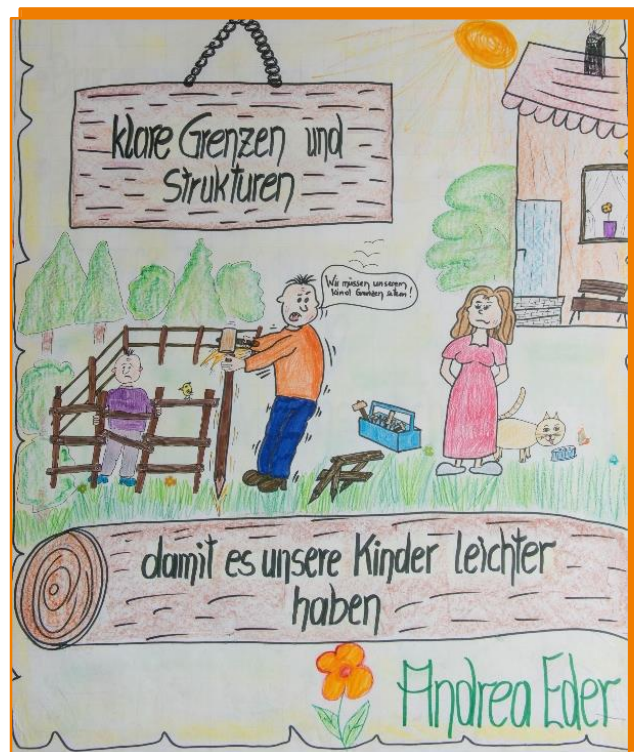 klare Grenzen und
Strukturen
Wir müssen unserem
Kind Grenzen setzen!
damit es unsere Kinder leichter
haben
Andrea Eder